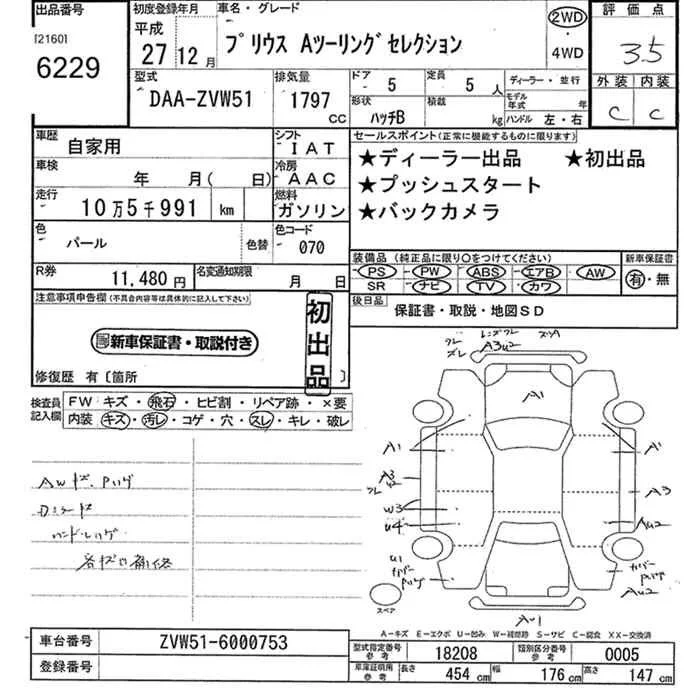 出品番号 初度登録年月 車名・グレード 2WD 評価点
[2160] 平成 プリウス Aツーリングセレクション ・ 3.5
6229 27年 12月 4WD
型式 排気量 ドア 5 定員 5人 ディーラー・並行 外装 内装
DAA-ZVW51 1797 CC 形状 ハッチB 積載 kg モデル年式 年 ハンドル 左・右 C C
車歴 自家用 シフト IAT セールスポイント(正常に機能するものに限ります)
車検 年 月( 日) 冷房 AAC ★ディーラー出品 ★初出品
走行 10万5千991 km 燃料 ガソリン ★プッシュスタート
★バックカメラ
色 パール 色替 色コード 070
装備品(純正品に限り○をつけてください) 新車保証書
PS ・ PW ・ ABS ・ エアB ・ AW 有・無
SR ナビ ・ TV ・ カワ
R券 11,480円 名変通知期限 月 日
後日品 保証書・取説・地図SD
注意事項申告欄(不具合内容等は具体的に記入して下さい)
新車保証書・取説付き 初出品
修復歴 有〔箇所 〕
検査員記入欄 FW キズ・飛石・ヒビ割・リペア跡・×要
内装 キズ・汚レ・コゲ・穴・スレ・キレ・破レ
A3U2
A1
A1 A1
A3 A3
W3
U4 AU2
U1
AU2
スペア
AU1
A−キズ E−エクボ U−凹み W−補修跡 S−サビ C−腐食 XX−交換済
車台番号 ZVW51-6000753 型式指定番号 参考 18208 類別区分番号 参考 0005
登録番号 車庫証明用 参考 長さ 454 cm 幅 176 cm 高さ 147 cm